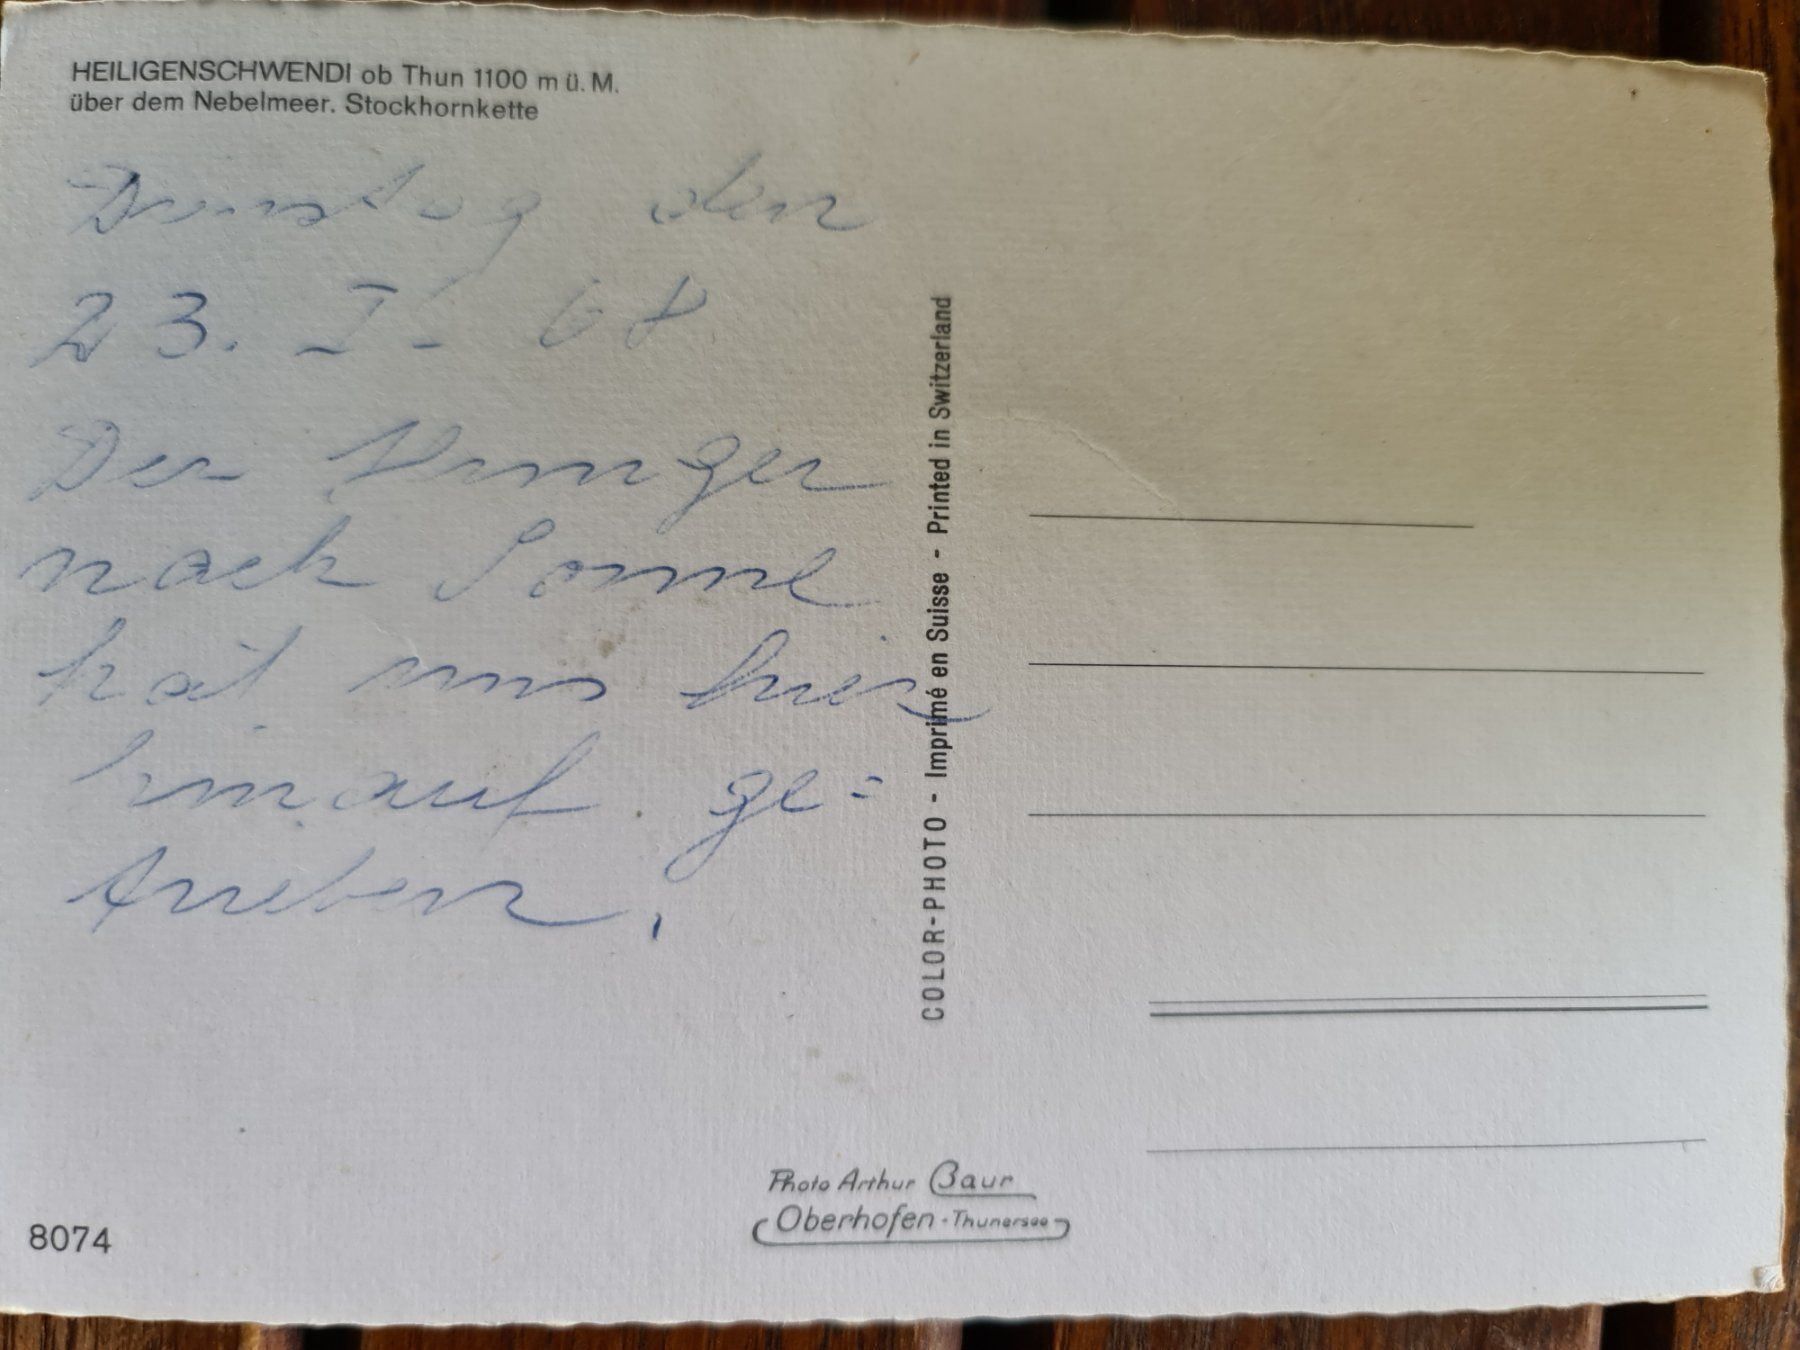 HEILIGENSCHWENDI ob Thun 1100 m ü. M.
über dem Nebelmeer. Stockhornkette
Dienstag den
23. I. 68
Der Hunger
nach Sonne
hat uns hier
hinauf ge=
trieben.
COLOR-PHOTO - Imprimé en Suisse - Printed in Switzerland
Photo Arthur Baur
Oberhofen - Thunersee
8074